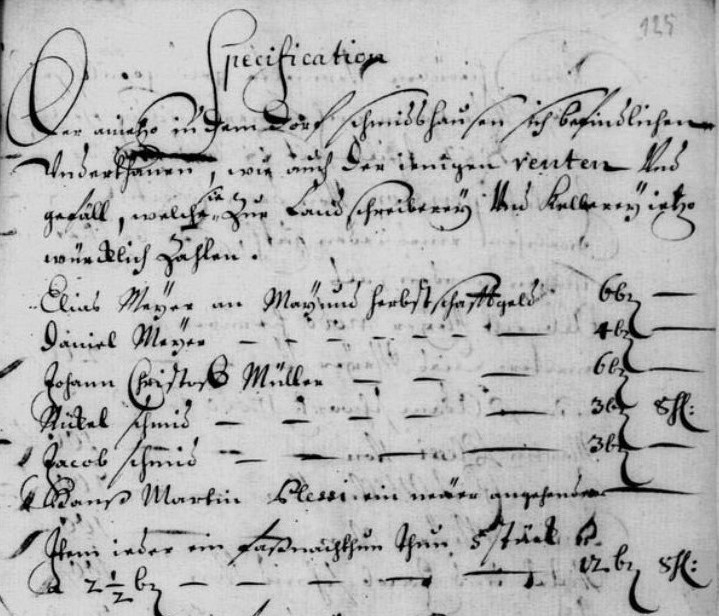 125
Specification
Der anietzo in dem Dorf Schmidshausen sich befindlichen
Underthanen, wie auch der ienigen renten Und
gefäll, welche sie Zur Landschreiberey Und Kellerey ietzo
würcklich Zahlen.
Elias Meyer an May und herbstschafftgeld 6 bz —
Daniel Meyer — — — — — — 4 bz —
Johann Christoff Müller — — — 6 bz —
Nickel Schmid — — — — — 3 bz 8 fl:
Jacob Schmid — — — — — 3 bz —
Hanß Martin ein neüer angehender
Item ieder ein faßnachthun thun 5 stück
a 2 1/2 bz — — — — — 12 bz 8 fl: